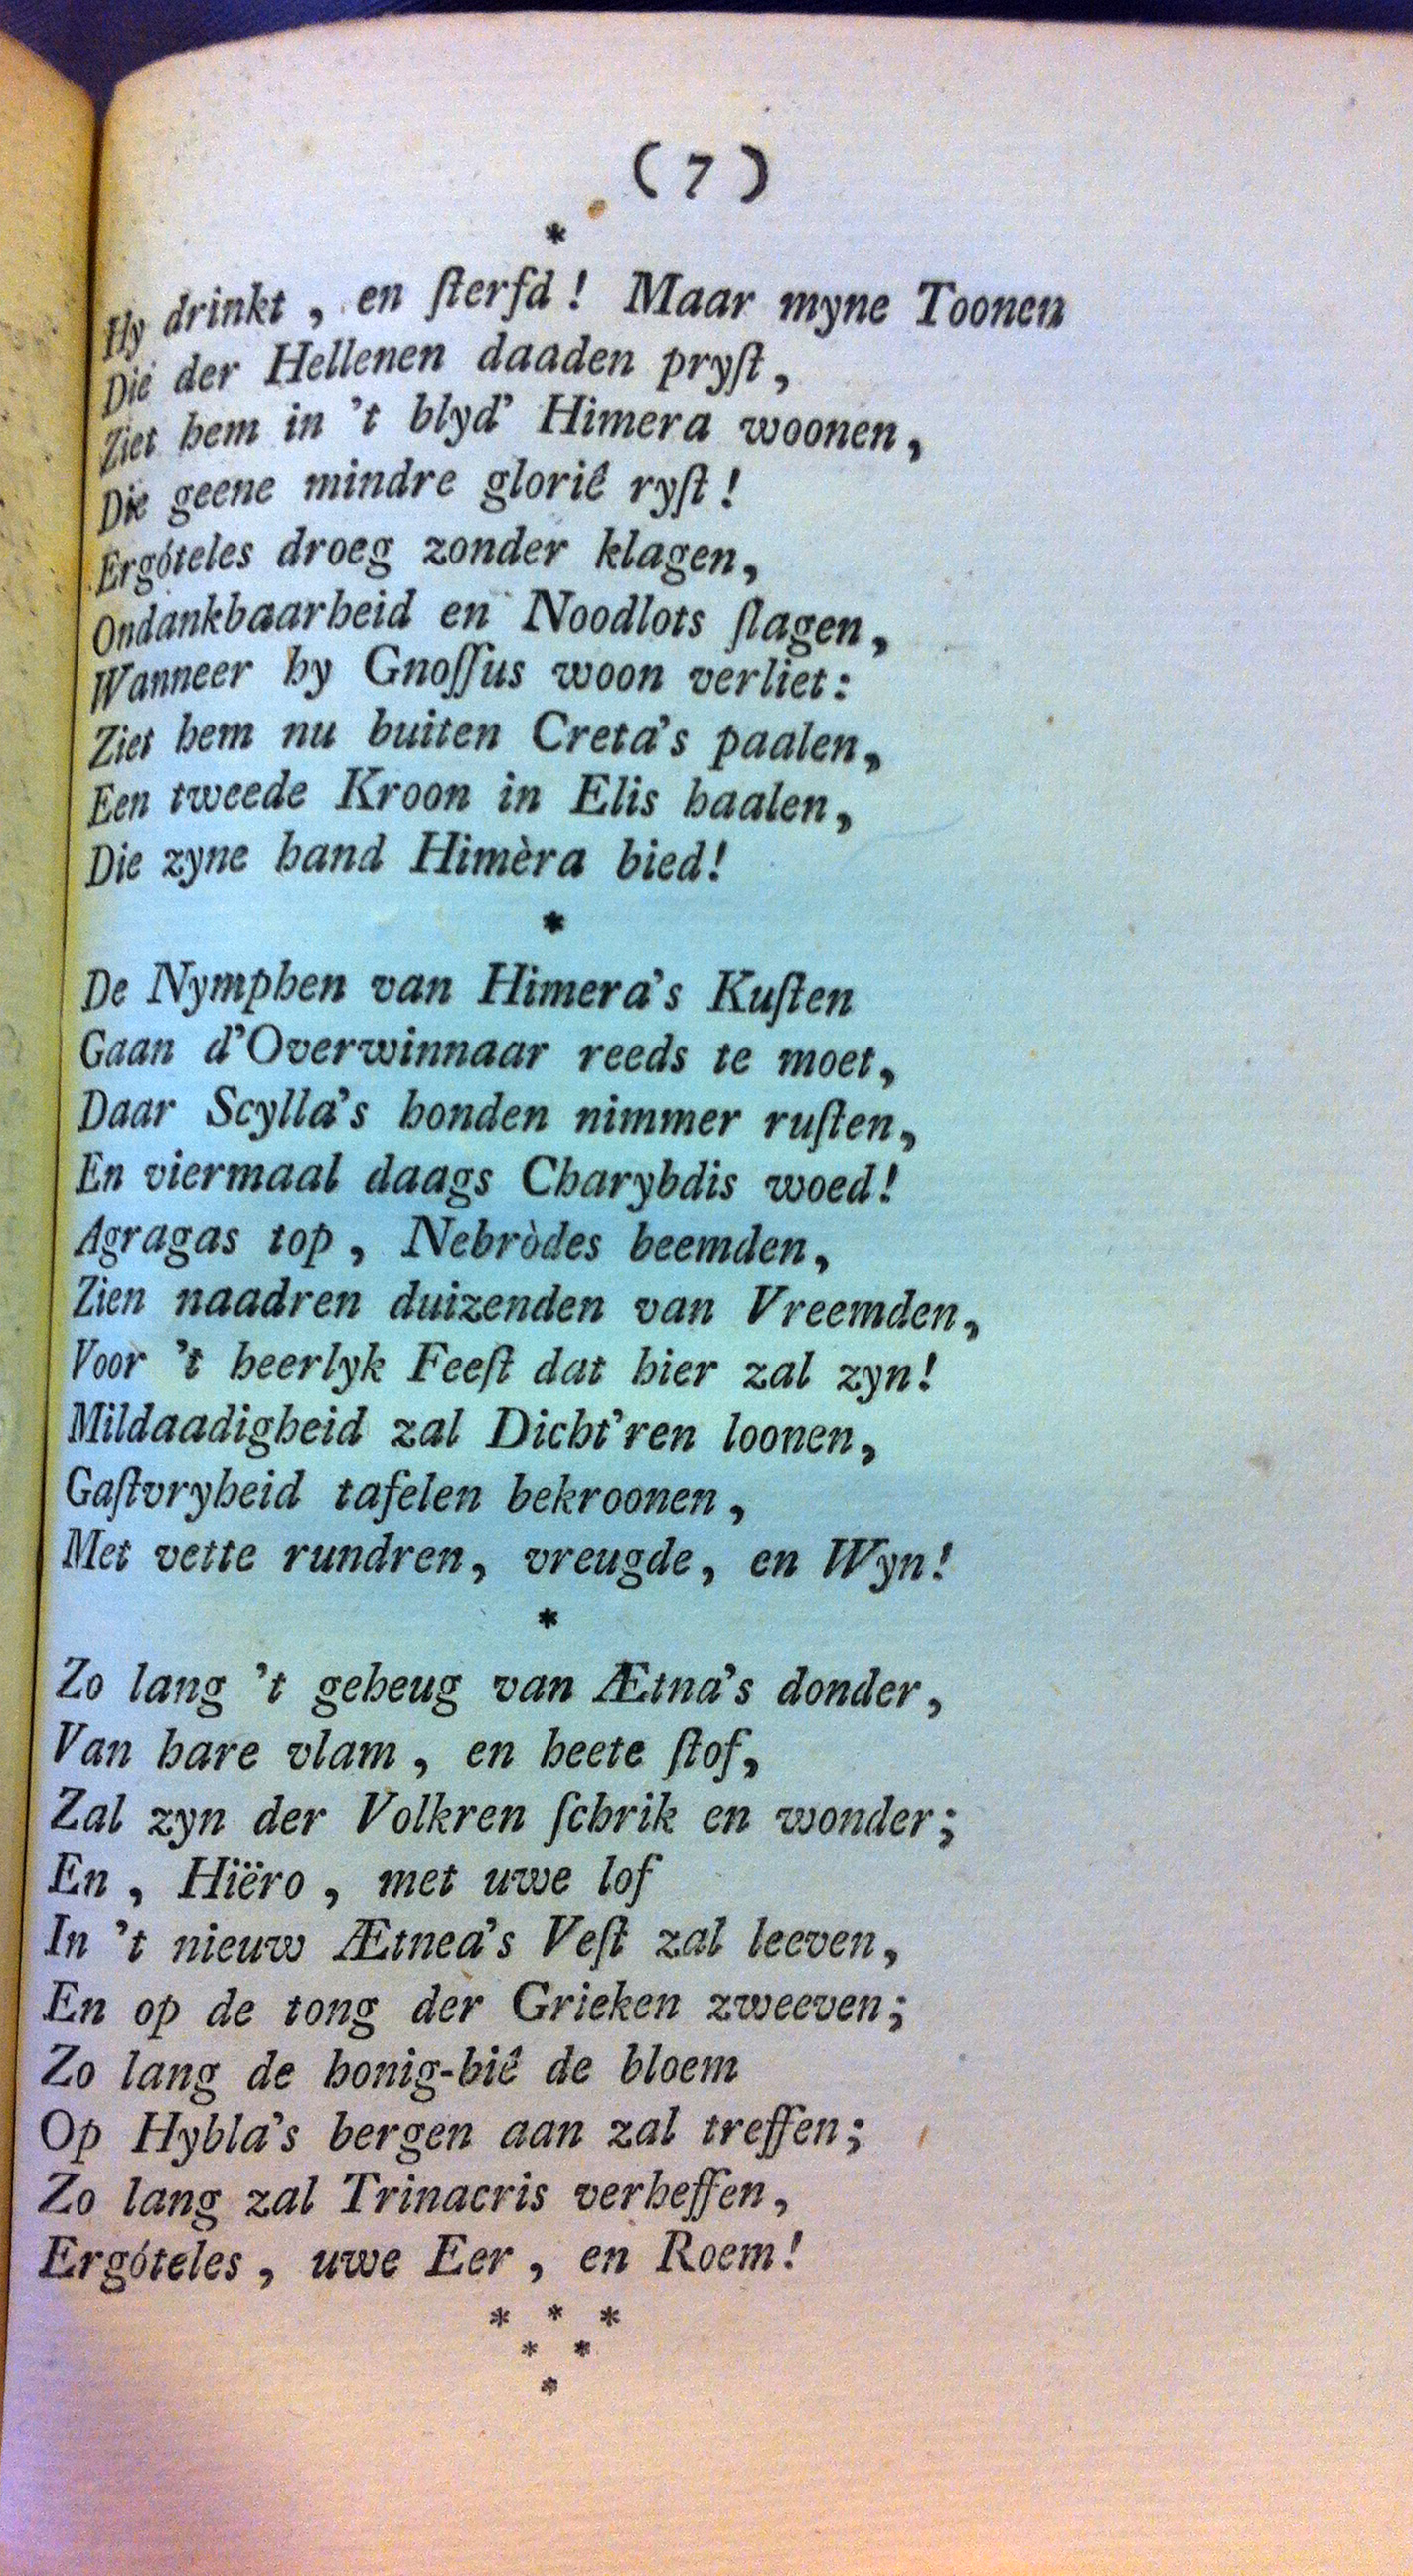 ( 7 )
*
Hy drinkt, en ſterfd! Maar myne Toonen
Die der Hellenen daaden pryſt,
Ziet hem in 't blyd' Himera woonen,
Die geene mindre gloriê ryſt!
Ergóteles droeg zonder klagen,
Ondankbaarheid en Noodlots ſlagen,
Wanneer hy Gnoſſus woon verliet:
Ziet hem nu buiten Creta's paalen,
Een tweede Kroon in Elis haalen,
Die zyne hand Himèra bied!
*
De Nymphen van Himera's Kuſten
Gaan d'Overwinnaar reeds te moet,
Daar Scylla's honden nimmer ruſten,
En viermaal daags Charybdis woed!
Agragas top, Nebròdes beemden,
Zien naadren duizenden van Vreemden,
Voor 't heerlyk Feeſt dat hier zal zyn!
Mildaadigheid zal Dicht'ren loonen,
Gaſtvryheid tafelen bekroonen,
Met vette rundren, vreugde, en Wyn!
*
Zo lang 't geheug van Ætna's donder,
Van hare vlam, en heete ſtof,
Zal zyn der Volkren ſchrik en wonder;
En, Hiëro, met uwe lof
In 't nieuw Ætnea's Veſt zal leeven,
En op de tong der Grieken zweeven;
Zo lang de honig-biê de bloem
Op Hybla's bergen aan zal treffen;
Zo lang zal Trinacris verheffen,
Ergóteles, uwe Eer, en Roem!
* * *
* *
*